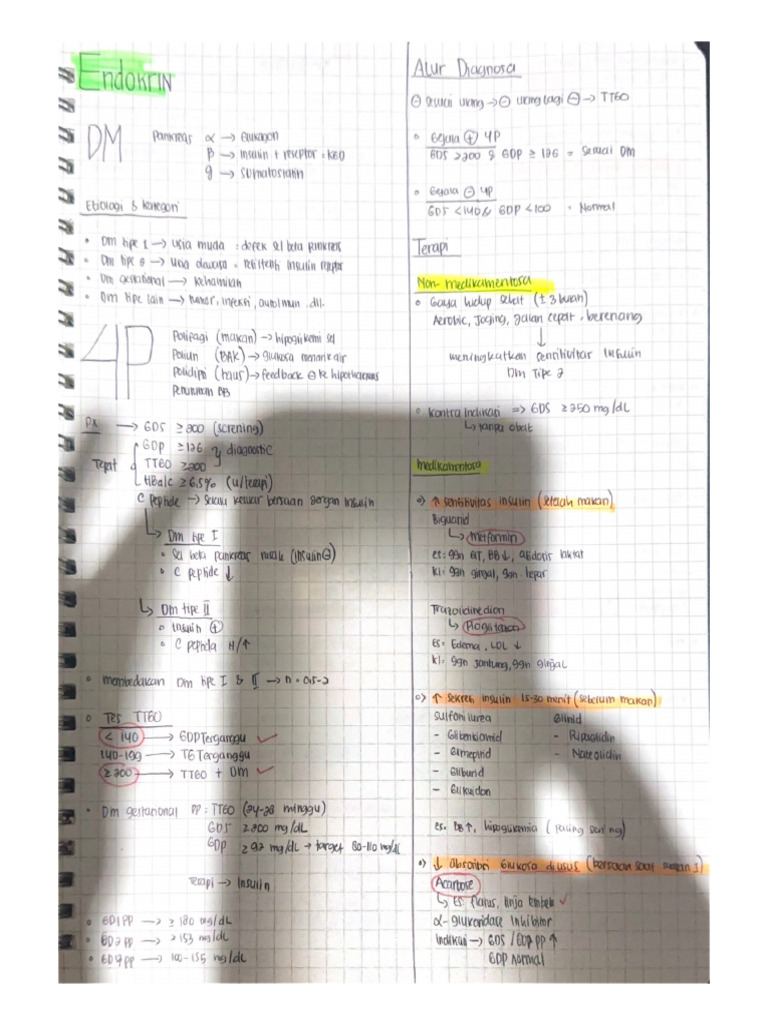 Endokrin
DM
Pankreas α → Glukagon
β → insulin + reseptor = KGD
g → somatostatin
Etiologi & kategori
• Dm tipe 1 → usia muda : defek sel beta pankreas
• Dm tipe 2 → usia dewasa = resistensi insulin reseptor
• Dm gestational → kehamilan
• Dm tipe lain → tumor, infeksi, autoimun, dll.
4P
Polifagi (makan) → hipoglikemi sel
Poliuri (BAK) → glukosa menarik air
Polidipsi (haus) → feedback ⊖ ke hipothalamus
Penurunan BB
Dx → GDS ≥ 200 (screning)
GDP ≥ 126 } diagnostic
Tepat { TTGO ≥ 200
HBa1c ≥ 6,5% (u/terapi)
C Peptide → selalu keluar bersaan dengan insulin
↳ Dm tipe I
• Sel beta pankreas rusak (insulin ⊖)
• C peptide ↓
↳ Dm tipe II
• Insulin ⊕
• C peptida N/↑
• membedakan Dm tipe I & II → n = 0,5-2
• Tes TTGO
< 140 → GDP Terganggu ✓
140-199 → TG Terganggu
≥ 200 → TTGO + DM ✓
• Dm gestational PP : TTGO (24-28 minggu)
GDS ≥ 200 mg/dL
GDP ≥ 92 mg/dL → target 80-110 mg/dL
Terapi → Insulin
• GD1PP → ≥ 180 mg/dL
• GD2PP → ≥ 153 mg/dL
• GD2PP → 100-155 mg/dL
Alur Diagnosa
⊖ → ⊖ ulang lagi ⊖ → TTGO
• Gejala ⊕ 4P
GDS ≥ 200 & GDP ≥ 126 = Sesuai DM
• Gejala ⊖ 4P
GDS < 140 & GDP < 100 = Normal
Terapi
Non-medikamentosa
• Gaya hidup sehat (± 3 bulan)
Aerobic, Joging, jalan cepat, berenang
↓
meningkatkan sensitivitas insulin
Dm Tipe 2
• Kontra Indikasi => GDS ≥ 250 mg/dL
↳ tanpa obat
medikamentosa
•) ↑ sensitivitas insulin (setelah makan)
Biguanid
↳ metformin
es: ggn GIT, BB↓, asidosis laktat
ki: ggn ginjal, ggn hepar
Thiazolidinedion
↳ Pioglitazon
Es = Edema, LDL ↓
KI = ggn jantung, ggn ginjal
•) ↑ sekresi insulin 15-30 menit (sebelum makan)
Sulfonilurea Glinid
- Glibenklamid - Ripaglidin
- Glimepirid - Nateglidin
- Gliburid
- Glikuidon
es: BB↑, hipoglikemia (paling sering)
•) ↓ absorbsi Glukosa di usus (bersaan saat makan)
Acarbose
↳ Es: flatus, tinja lembek ✓
α-glukosidase Inhibitor
Indikasi → GDS / GD PP ↑
GDP Normal